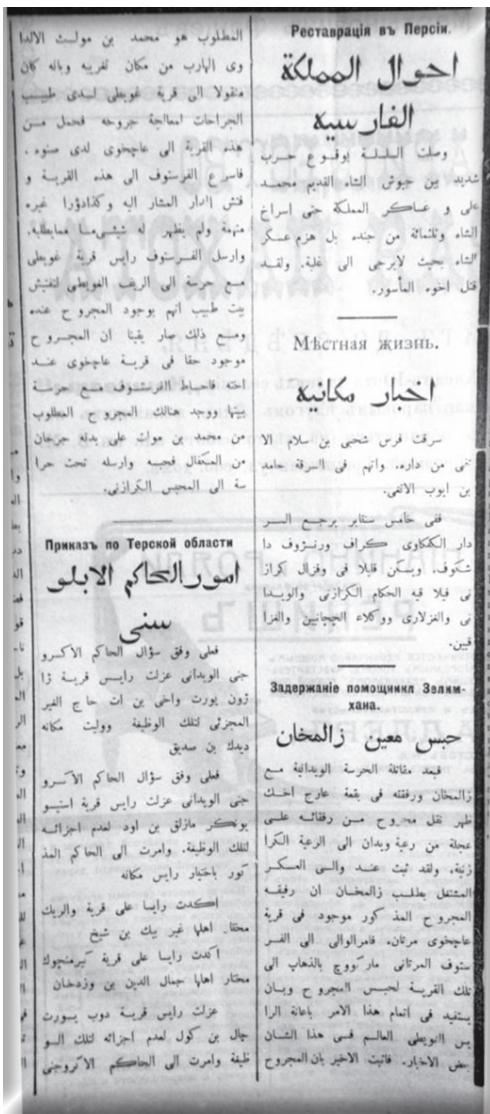 Реставрація въ Персіи.
احوال المملكة
الفارسية
وصلت البلدة بوقوع حرب
شديد بين جيوش الشاه القديم محمد
على و عساكر المملكة حتى اسراخ
الشاه وثلثمائة من جنده بل هزم عسكر
الشاه بحيث لايرجى الى غلبة. ولقد
قتل اخوه المأسور.
Мѣстная жизнь.
اخبار مكانية
سرقت فرس شخى بن سلام الا
تمى من داره. واتهم فى السرقة حامد
بن ايوب الائفى.
ففى خامس سنتابر يرجع السر
دار الكفكاوى كراف ورنسزوف دا
شكوف. ويسكن قليلا فى وقزال كراز
نى فيلا قيه الحكام الكرازنى والويدا
نى والغزلارى ووكلاء الچچانيين والغزا
قيين.
Задержаніе помощникл Зелим-
хана.
حبس معين زالمخان
فبعد مقاتلة الحرسة الويدانية مع
زالمخان ورفقته فى بقعة عارج اخك
ظهر نقل مجروح من رفقائه على
عجلة من رعية ويدان الى الرعية الكرا
زنية. ولقد ثبت عند والى العسكر
المشتغل بطلب زالمخان ان رفيقه
المجروح المذكور موجود فى قرية
عاچخوى مرتان. فامرالوالى الى الفر
ستوف المرتانى ماركووچ بالذهاب الى
تلك القرية لحبس المجروح وبان
يستفيد فى اتمام هذا الامر باعانة الرا
يس الغويطى العالم فى هذا الشان
بعض الاخبار. فاثبت الاخير بان المجروح
المطلوب هو محمد بن موليت الالدا
وى الهارب من مكان تغريبه وبانه كان
منقولا الى قرية غويطى لسدى طبيب
الجراحات لمعالجة جروحه فحمل من
هذه القرية الى عاچخوى لدى صنوه.
فاسرع الفرستوف الى هذه القرية و
فتش الدار المشار اليه وكذادؤرا غيره
متهمة ولم يظهر له شيئى مما معايطلبه.
وارسل الفرستوف رايس قرية غويطى
مع حرسة الى الريف الغويطى لتفتيش
بيت طبيب اتهم بوجود المجروح عنده
ومع ذلك صار يقينا ان المجروح
موجود حقا فى قرية عاچخوى عند
اخته فاحاط الفرستوف مع حرسة
بيتها ووجد هنالك المجروح المطلوب
من محمد بن موليت على يدله جرحان
من المكتفال فحبسه وارسله تحت حرا
سة الى المحبس الكرازنى.
Приказъ по Терской области
امور الحاكم الابلو
سنى
فعلى وفق سؤال الحاكم الاكسرو
جنى الويدانى عزلت رايس قرية ژا
ژون يورت واخى بن ات حاج الغير
المجزئى لتلك الوظيفة ووليت مكانه
ديدك بن صديق
فعلى وفق سؤال الحاكم الاكسرو
جنى الويدانى عزلت رايس قرية استيو
يونكر مازلق بن اود لعدم اجزائه
لتلك الوظيفة. وامرت الى الحاكم المذ
كور باختيار رايس مكانه
اكدت رايسا على قرية والريك
محقا. اهلها غير بيك بن شيخ
اكدت رايسا على قرية كيرمنچوك
مختار اهلها جمال الدين بن وزدخان
عزلت رايس قرية دوب يسورت
چپال بن كول لعدم اجزائه لتلك الو
ظيفة وامرت الى الحاكم الاكروجنى